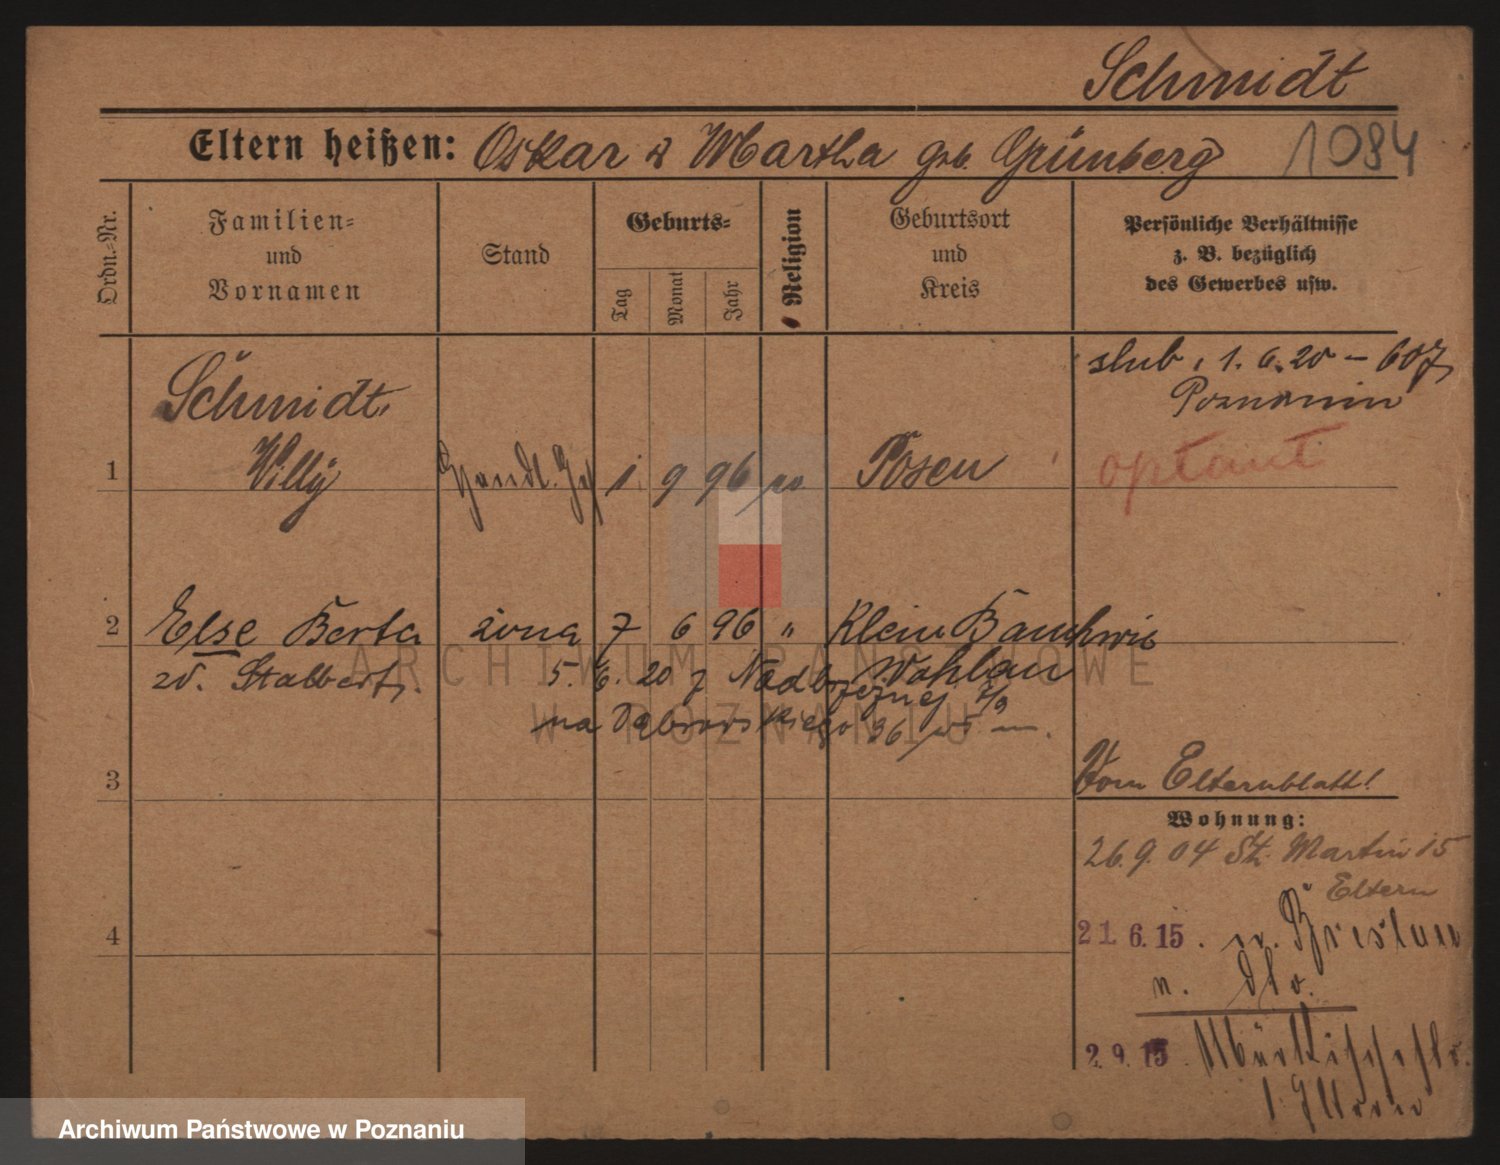 Schmidt
Eltern heißen: Oskar & Martha geb. Grünberg 1084
Ordn.-Nr.
Familien-
und
Vornamen
Stand
Geburts-
Tag
Monat
Jahr
Religion
Geburtsort
und
Kreis
Persönliche Verhältnisse
z. B. bezüglich
des Gewerbes usw.
ślub, 1. 6. 20 – 607
Schmidt,
1 Willy Handl. 1 9 96 Posen
optant
2 Else Berta żona 7 6 96 "
Wohlau
5. 6. 20 z
36
3
Vom Elternblatt!
Wohnung:
26. 9. 04 St. Martin 15
Eltern
4
21. 6. 15. n. Breslau
2. 9. 15. Märkischestr.
ARCHIWUM PAŃSTWOWE
W POZNANIU
Archiwum Państwowe w Poznaniu